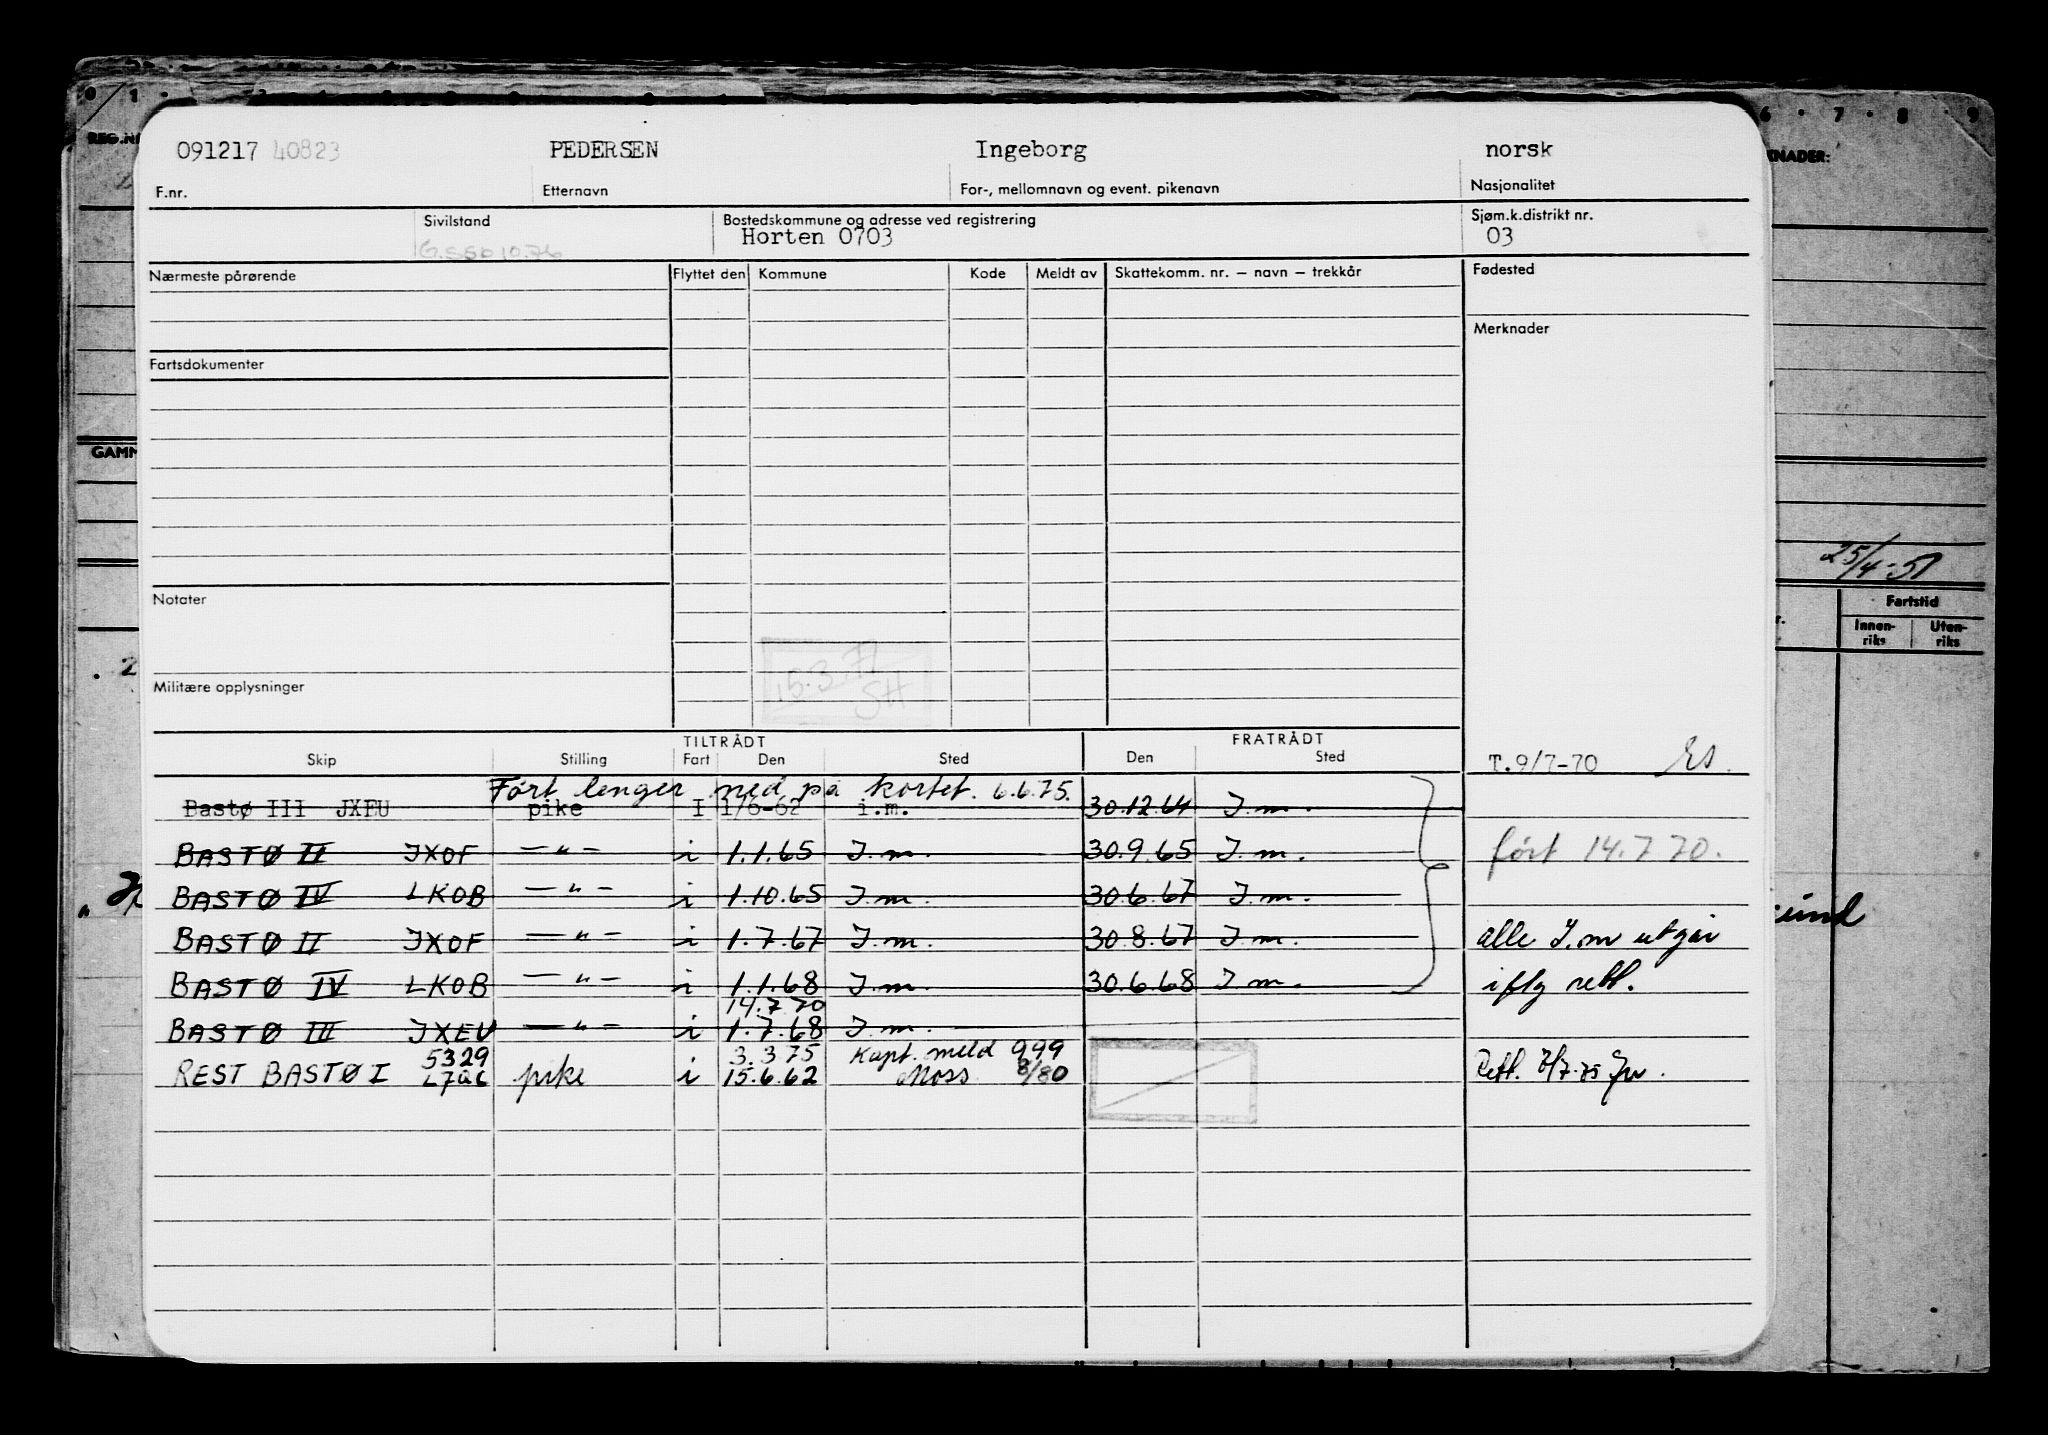 091217 40823 PEDERSEN Ingeborg norsk
F.nr. Etternavn For-, mellomnavn og event. pikenavn Nasjonalitet
Sivilstand Bostedskommune og adresse ved registrering Sjøm.k.distrikt nr.
Horten 0703 03
Nærmeste pårørende Flyttet den Kommune Kode Meldt av Skattekomm. nr. – navn – trekkår Fødested
Merknader
Fartsdokumenter
Notater
15.3.77
SH
Militære opplysninger
TILTRÅDT FRATRÅDT
Skip Stilling Fart Den Sted Den Sted
T.9/7-70 Es.
Ført lenger ned på kortet. 6.6.75.
Bastø III JXEU pike I 1/6-62 i.m. 30.12.64 I.m.
BASTØ II JXOF — " — i 1.1.65 I.m. 30.9.65 I.m. ført 14.7 70.
BASTØ IV LKOB — " — i 1.10.65 I.m. 30.6.67 I.m.
BASTØ II JXOF — " — i 1.7.67 I.m. 30.8.67 I.m. alle I.m utgår
BASTØ IV LKOB — " — i 1.1.68 I.m. 30.6.68 I.m. iflg rett.
14.7.70
BASTØ III JXEU — " — i 1.7.68 I.m.
5329 3.3 75 Kapt. meld 999
REST BASTØ I pike i 15.6.62 Moss 8/80 Rett. 7/7.75
REG.N
KNADER:
GAMM
25/4-51
Fartstid
Innen-riks Uten-riks
6 7 8 9